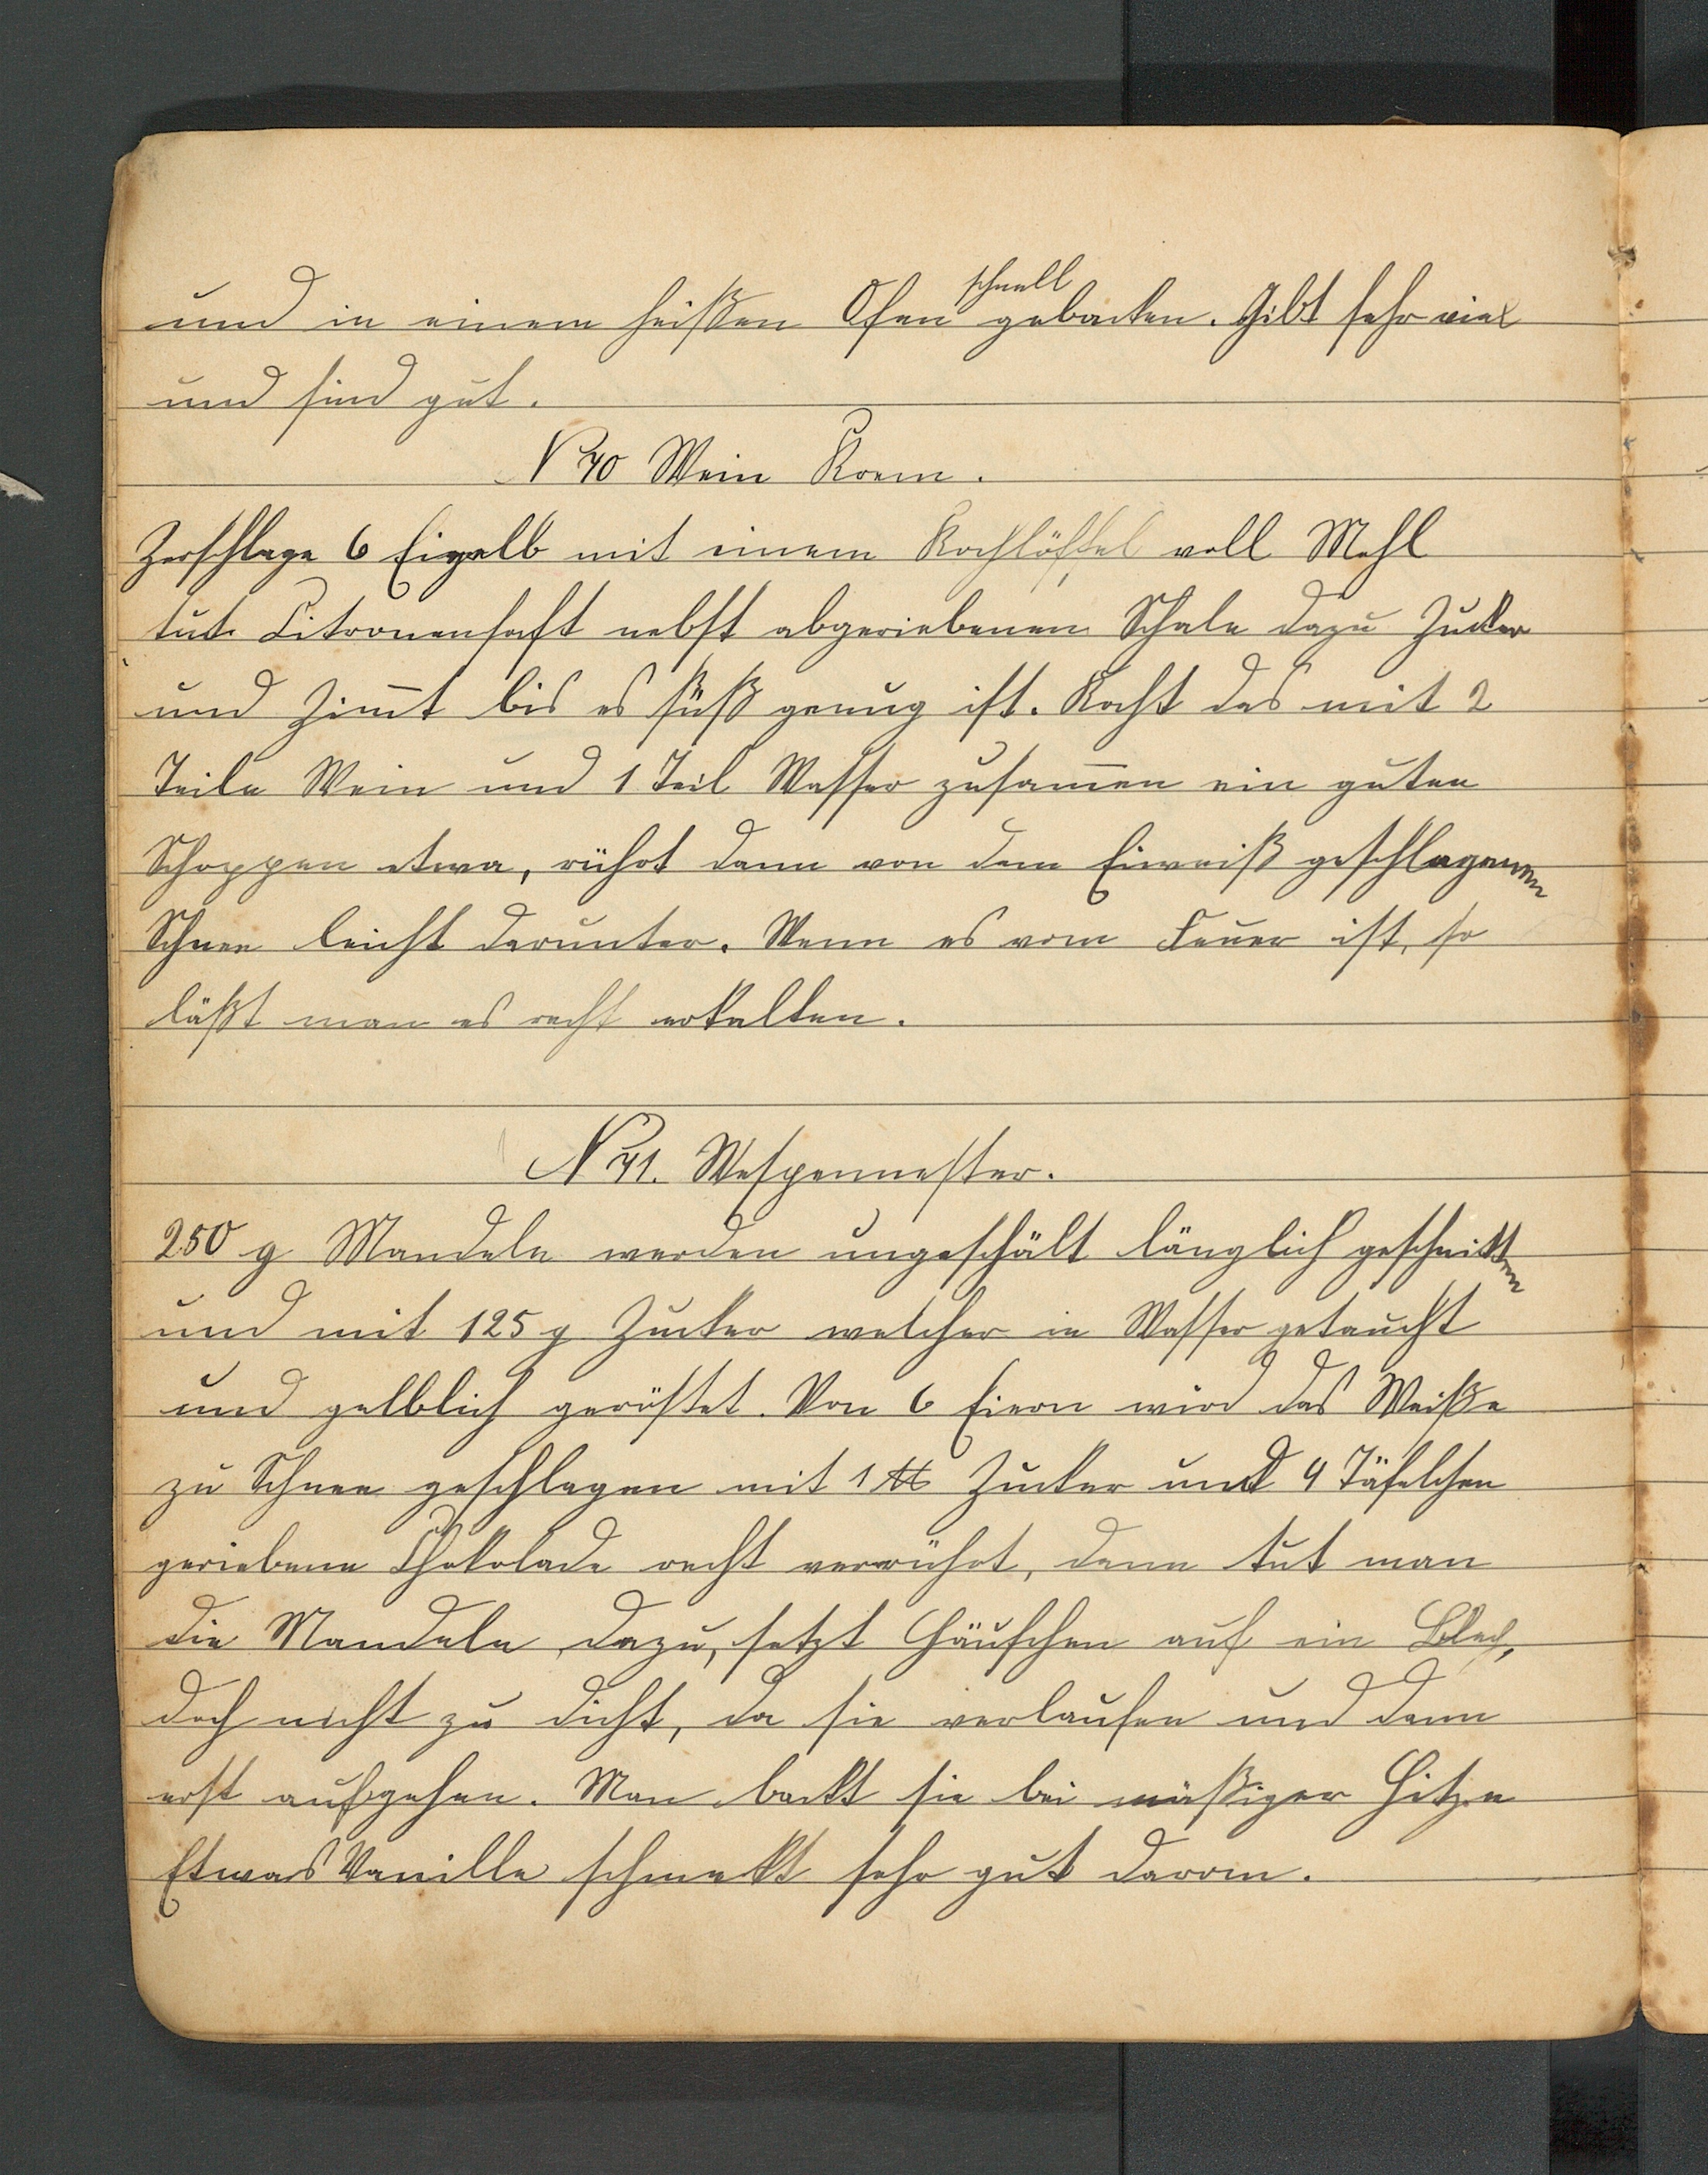 und in einem heißen Ofen schnell gebacken. Gibt sehr viel
und sind gut.
N 40 Wein Krem.
Zerschlage 6 Eigelb mit einem Kochlöffel voll Mehl
tut Citronensaft nebst abgeriebenen Schale dazu Zucker
und Zim̅t bis es süß genug ist. Kocht das mit 2
Teile Wein und 1 Teil Wasser zusam̅en ein guten
Schoppen etwa, rührt dann von dem Eiweiß geschlagenen
Schnee leicht darunter. Wenn es vom Feuer ist, so
läßt man es recht erkalten.
N 41. Wespennester.
250 g Mandeln werden ungeschält länglich geschnitten
und mit 125 g Zucker welcher in Wasser getaucht
und gelblich geröstet. Von 6 Eiern wird das Weiße
zu Schnee geschlagen mit 1 ℔ Zucker und 4 Täfelchen
geriebene Chokolade recht verrührt, dann tut man
die Mandeln dazu, setzt Häufchen auf ein Blech,
doch nicht zu dicht, da sie verlaufen und dann
erst aufgehen. Man backt sie bei mäßiger Hitze
Etwas Vanille schmekt sehr gut darom.